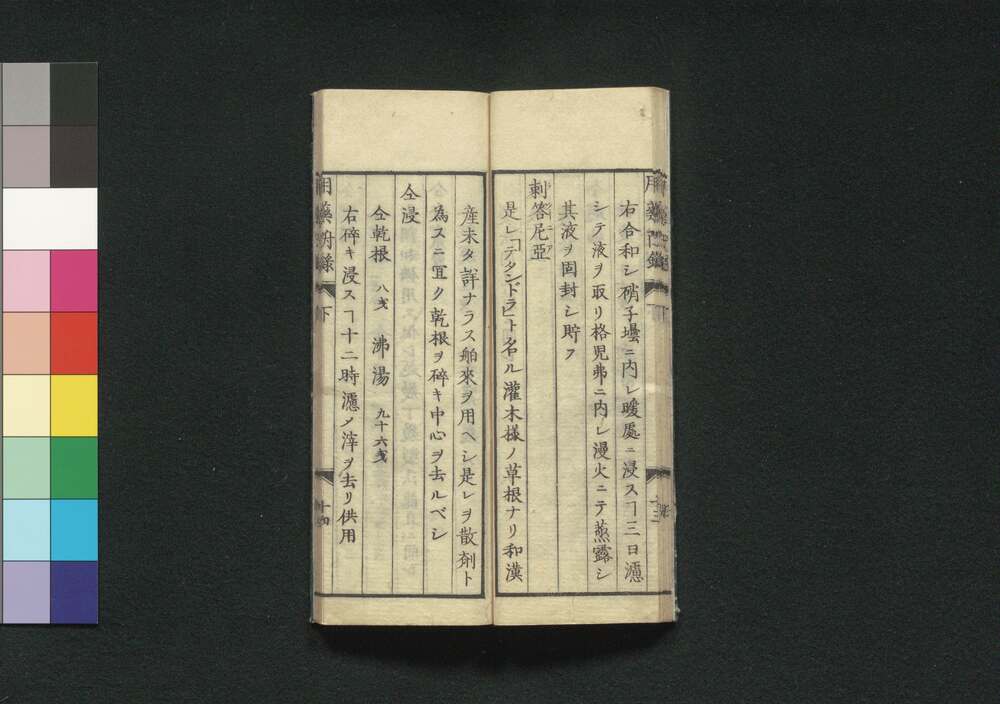 右合和シ硝子壜ニ内レ暖處ニ浸スヿ三日濾
シテ液ヲ取リ格児弗ニ内レ漫火ニテ蒸露シ
其液ヲ固封シ貯フ
刺答尼亞
是レ「テタンドラ」ト名ル灌木様ノ草根ナリ和漢
産未タ詳ナラス舶來ヲ用ヘシ是レヲ散剤ト
為スニ冝ク乾根ヲ碎キ中心ヲ去ルベシ
仝浸
仝乾根 八戔 沸湯 九十六戔
右碎キ浸スヿ十二時濾メ滓ヲ去リ供用
用藥附録 下 十四